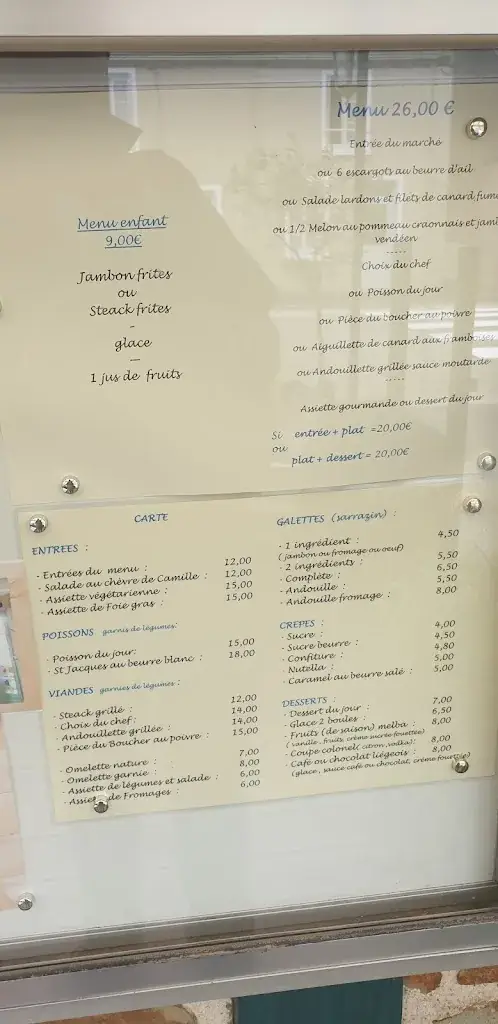 Menu enfant
9,00€
Jambon frites
ou
Steack frites
-
glace
—
1 jus de fruits
Menu 26,00 €
Entrée du marché
ou 6 escargots au beurre d'ail
ou Salade lardons et filets de canard fumé
ou 1/2 Melon au pommeau craonnais et jam
vendéen
-----
Choix du chef
ou Poisson du jour
ou Pièce du boucher au poivre
ou Aiguillette de canard aux framboises
ou Andouillette grillée sauce moutarde
-----
Assiette gourmande ou dessert du jour
Si entrée + plat =20,00€
ou
plat + dessert = 20,00€
CARTE
ENTREES :
- Entrées du menu : 12,00
- Salade au chèvre de Camille : 12,00
- Assiette végétarienne : 15,00
- Assiette de Foie gras : 15,00
POISSONS garnis de légumes:
- Poisson du jour: 15,00
- St Jacques au beurre blanc : 18,00
VIANDES garnies de légumes :
- Steack grillé : 12,00
- Choix du chef : 14,00
- Andouillette grillée : 14,00
- Pièce du Boucher au poivre : 15,00
- Omelette nature : 7,00
- Omelette garnie : 8,00
- Assiette de légumes et salade : 6,00
- Assiette de Fromages : 6,00
GALETTES (sarrazin) :
- 1 ingrédient : 4,50
(jambon ou fromage ou oeuf)
- 2 ingrédients : 5,50
- Complète : 6,50
- Andouille : 5,50
- Andouille fromage : 8,00
CREPES :
- Sucre : 4,00
- Sucre beurre : 4,50
- Confiture : 4,80
- Nutella : 5,00
- Caramel au beurre salé : 5,00
DESSERTS :
- Dessert du jour : 7,00
- Glace 2 boules : 6,50
- Fruits (de saison) melba : 8,00
(vanille, fruits, crème sucrée fouettée)
- Coupe colonel( citron ,vodka): 8,00
- Café ou chocolat liégeois : 8,00
(glace, sauce café ou chocolat, crème fouettée)